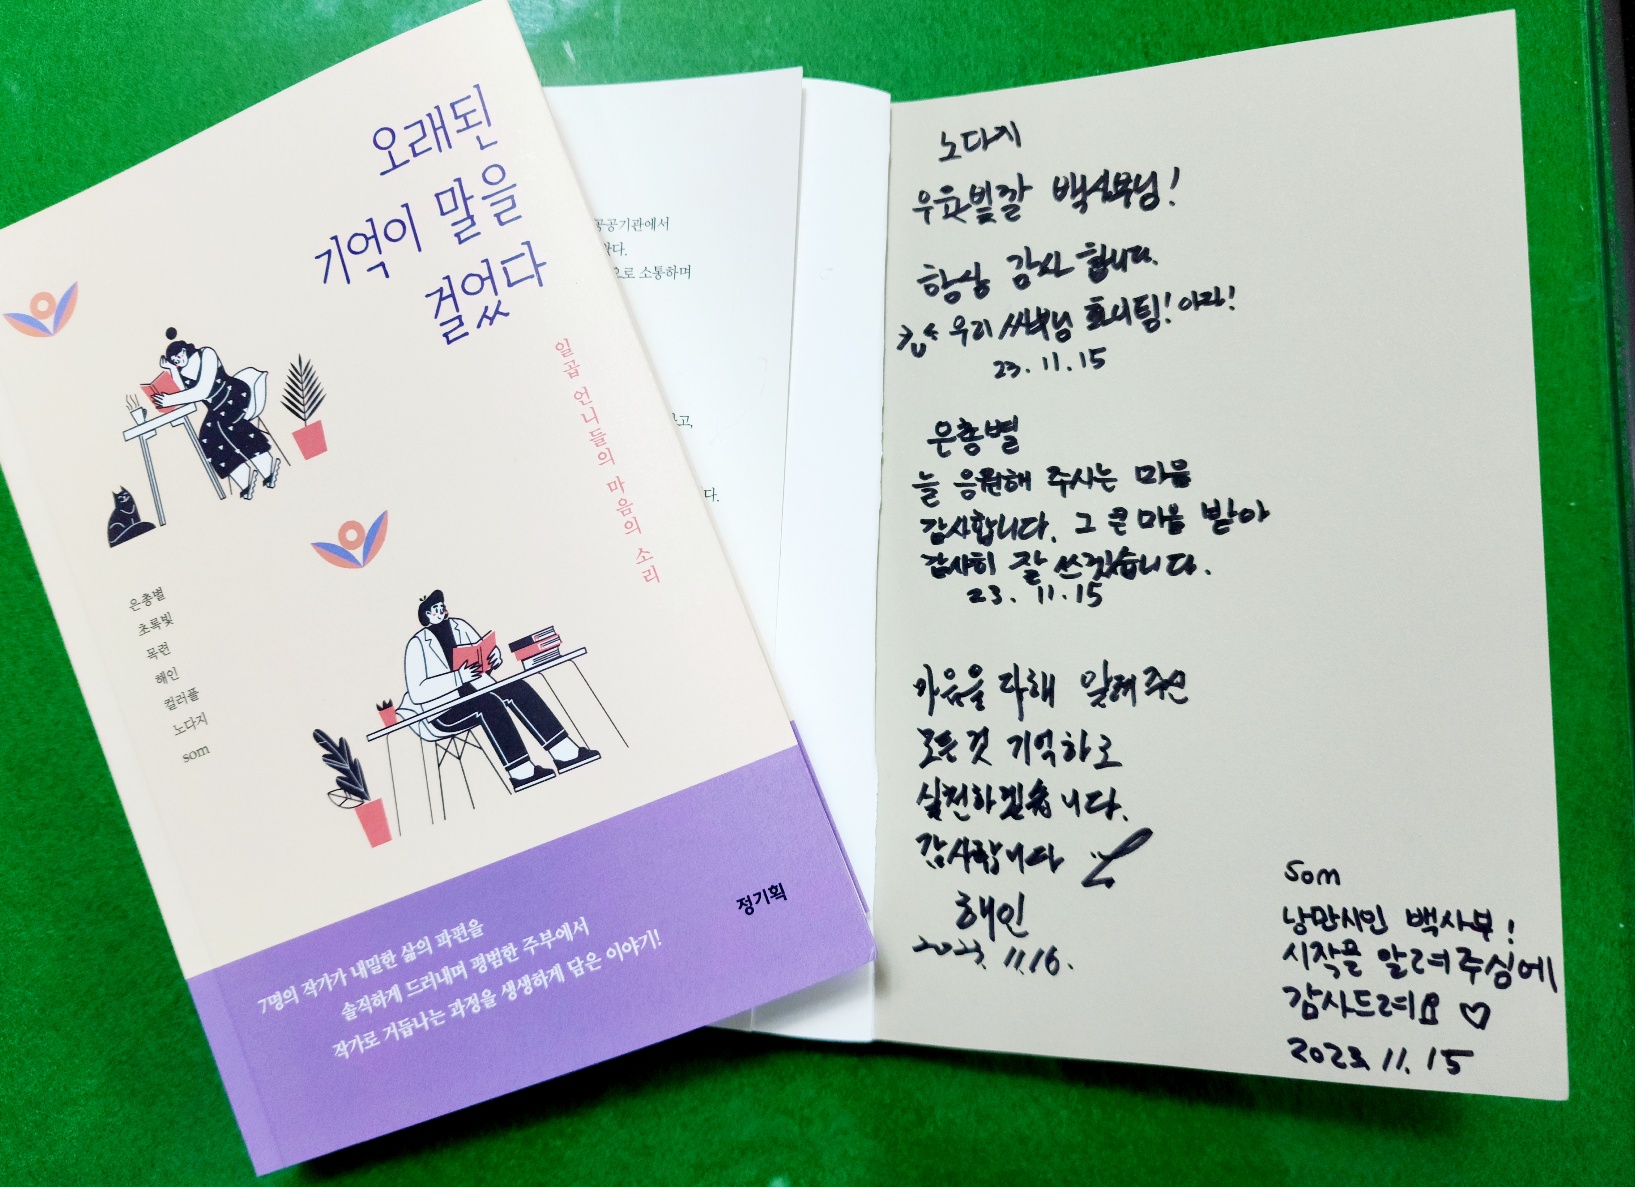 오래된
기억이 말을
걸었다
일곱 언니들의 마음의 소리
은총별
초록빛
목련
해인
컬러풀
노다지
som
7명의 작가가 내밀한 삶의 파편을
솔직하게 드러내며 평범한 주부에서
작가로 거듭나는 과정을 생생하게 담은 이야기!
정기획
공공기관에서
으로 소통하며
고,
다.
노다지
우윳빛깔 백사부님!
항상 감사 합니다.
우리 싸부님 호니팀! 아자!
23.11.15
은총별
늘 응원해 주시는 마음
감사합니다. 그 큰 마음 받아
감사히 잘 쓰겠습니다.
23.11.15
마음을 다해 알려주신
모든것 기억하고
실천하겠습니다.
감사합니다
해인
2023. 11.16.
Som
낭만시인 백사부!
시작을 알려주심에
감사드려요 ♡
2023. 11. 15